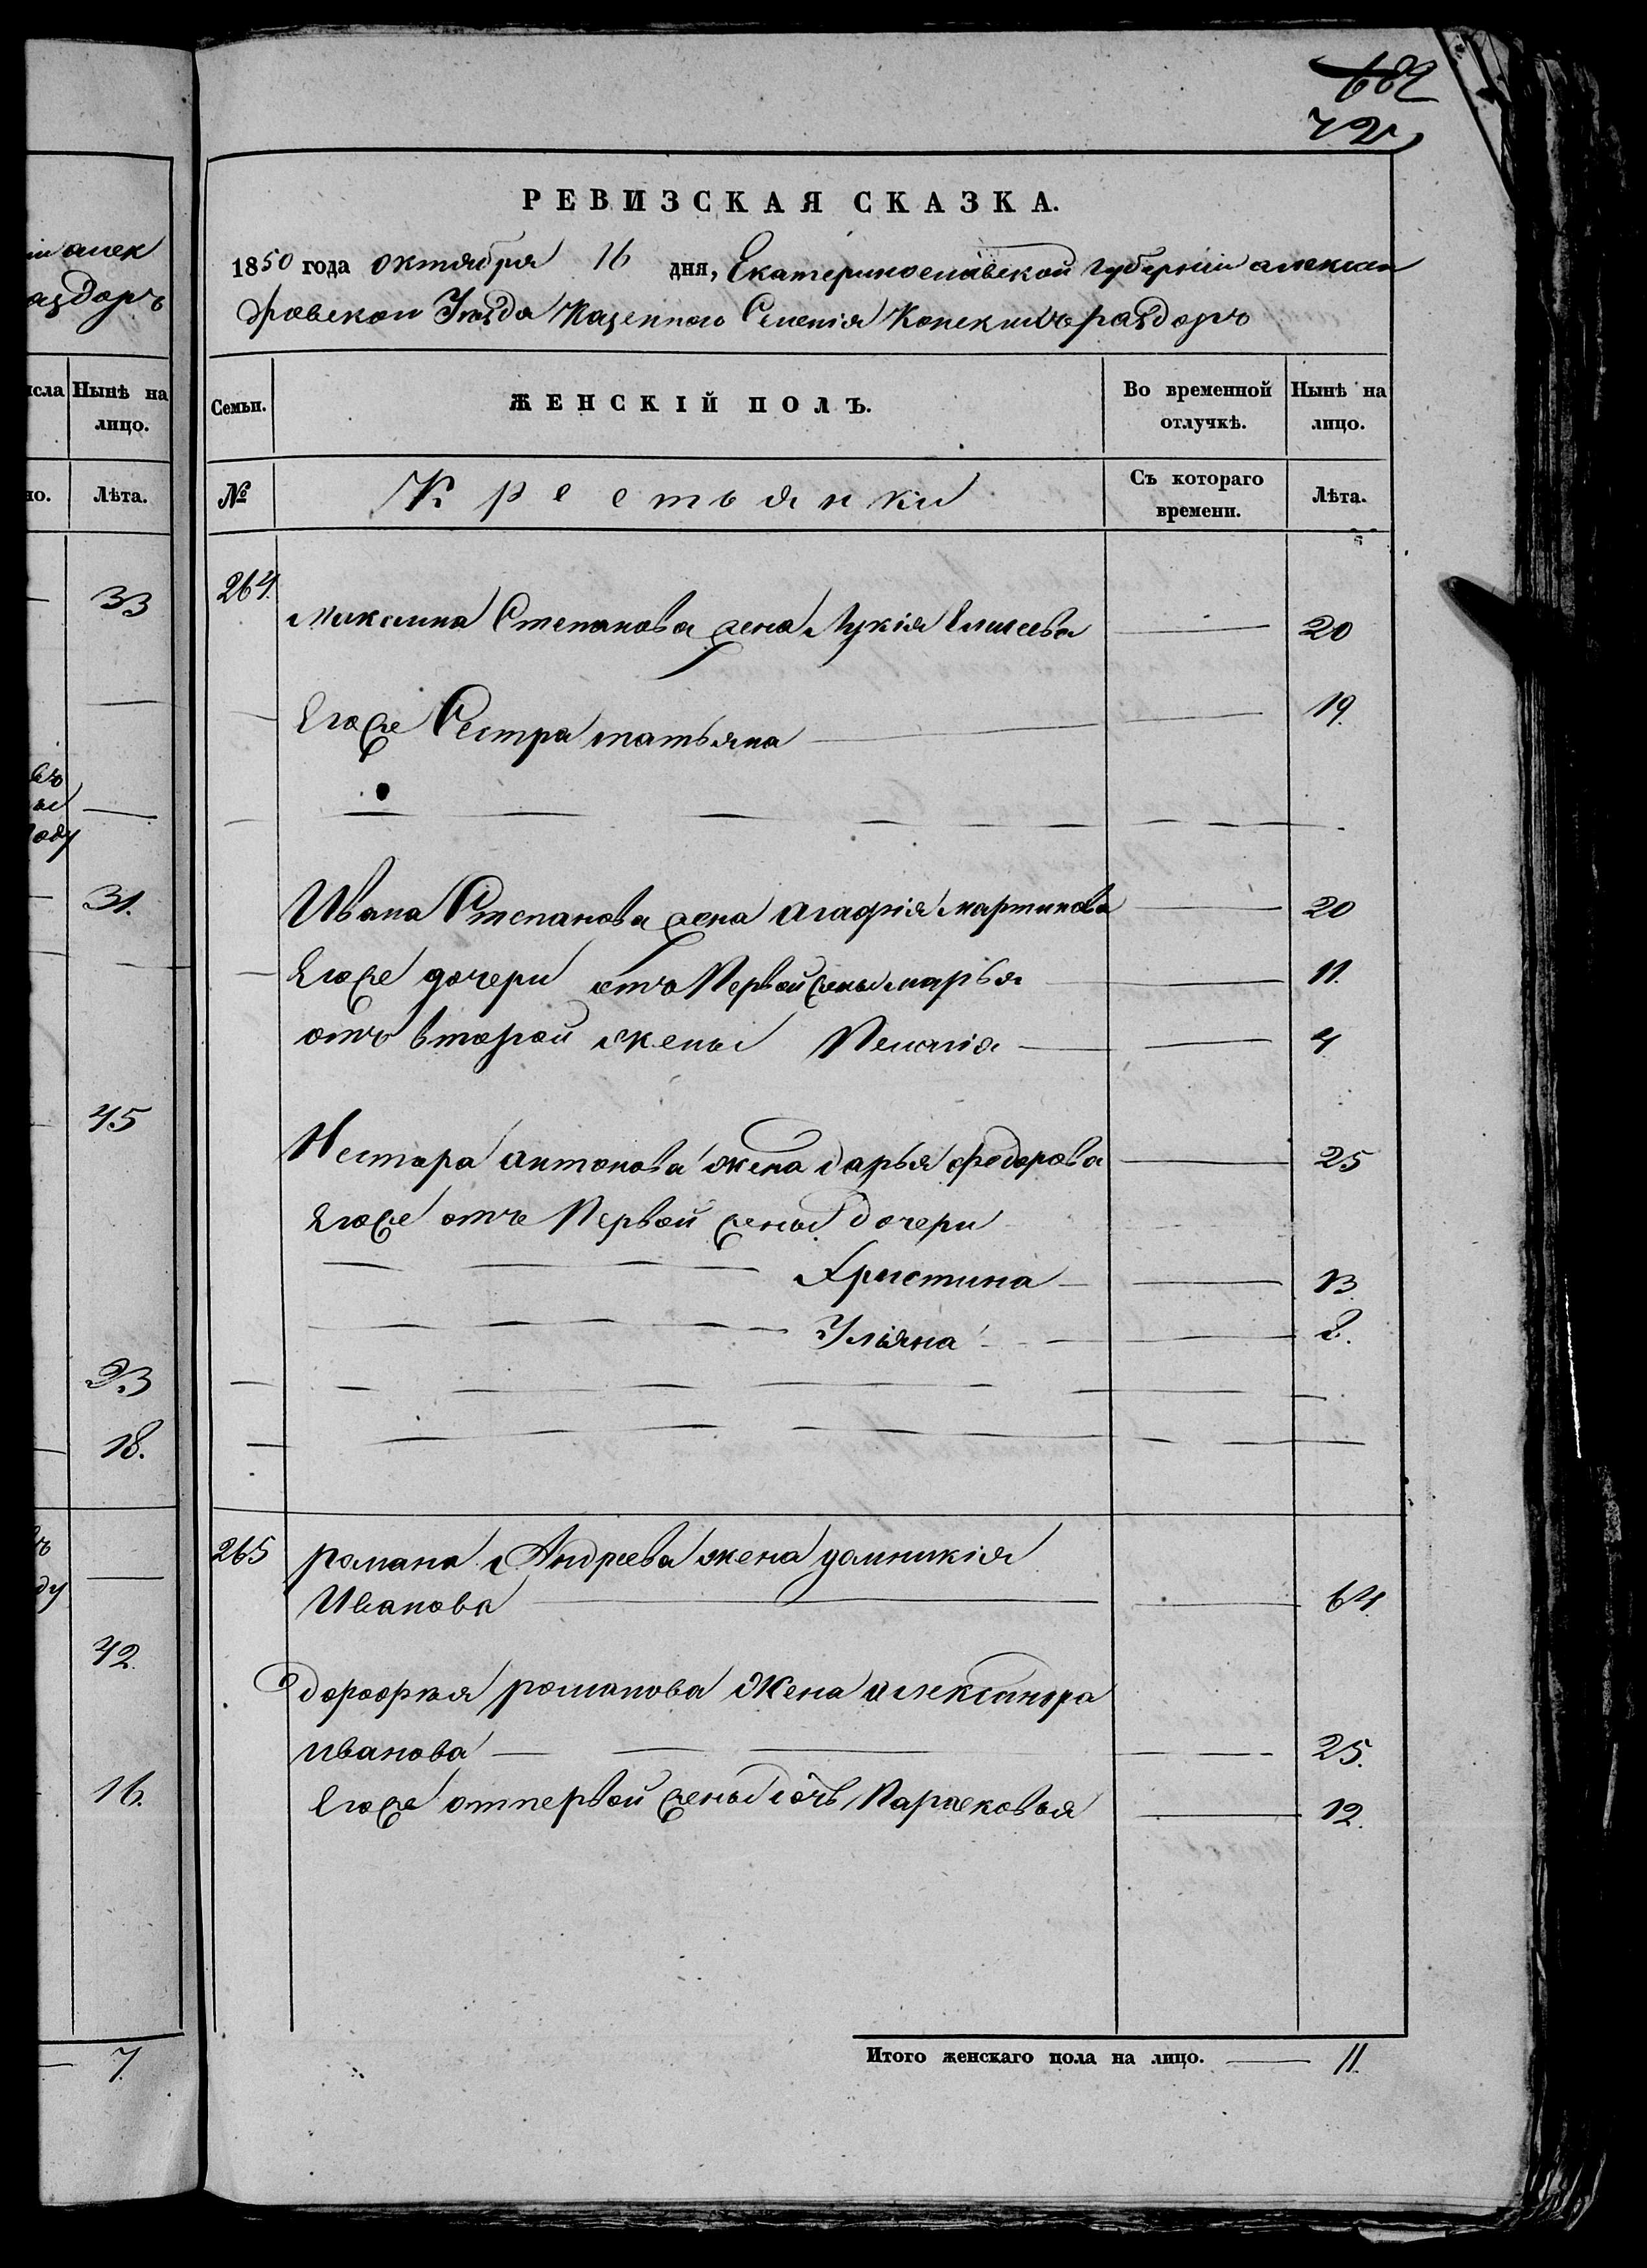 682
72
РЕВИЗСКАЯ СКАЗКА.
1850 года октября 16 дня, Екатеринославской губерніи алексан
дровскои Уезда Казенного Селенія Конскихъ раздоръ
Семьи. ЖЕНСКІЙ ПОЛЪ. Во временной отлучкѣ. Нынѣ на лицо.
№ Крестьянки Съ котораго времени. Лѣта.
264. Максима Степанова жена Лукія Елисеева — 20
Егоже Сестра татьяна — 19.
Ивана Степанова жена агафія мартинова — 20
Егоже дочери отъ Первой жены марья — 11.
отъ второй жены Пелагія — 4
Нестора антонова жена дарья федорова — 25
Егоже отъ Первой жены дочери
Христина — 13
Ульяна — 8.
265 романа Андреева жена домникія
Иванова — 64
дорофея романова Жена александра
иванова — 25.
Егоже отпервой жены дочь Парасковья — 12.
Итого женскаго пола на лицо. — 11.
алек
аздоръ
исла Нынѣ на лицо.
но. Лѣта.
33
оду
31.
45
23
18.
ду
42.
16.
7